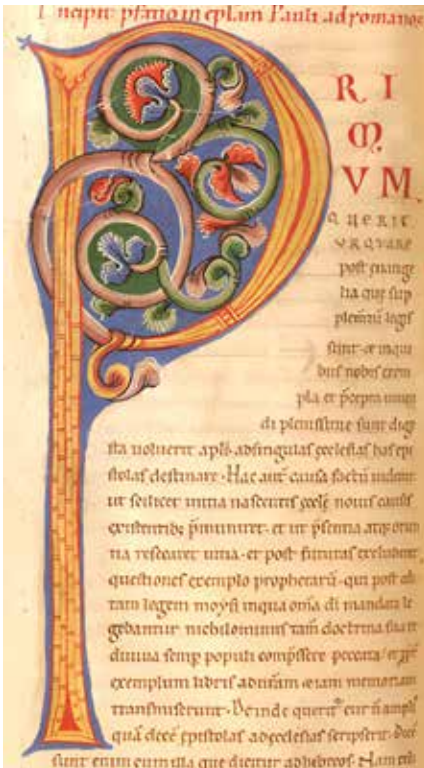 Incipit p̄fatio in eplam Pauli ad romanos
P RI
M
VM
QUERIT
VR QVARE
post euange
lia que sup
plem̄tū legis
sunt· et in qui
bus nobis exem
pla et p̄cepta
di plenissime sunt dige
sta uoluerit apl̄s ad singulas ecclesias has epi
stolas destinare· Hac aut̄ causa factū
ut scilicet initia nascentis eccl̄e nouis causis
existentib; p̄muniret· et ut p̄sentia atq; orien
tia resecaret uitia· et post futuras excluderet
questiones exemplo prophetarū· qui post edi
tam legem moysi in qua om̄ia di mandata le
gebantur nichilominus tam̄ doctrina sua
diuina semp populi comp̄ssere peccata· et
exemplum libris ad n̄ram etiam memoriam
transmiserunt· Deinde querit cur n̄ ampli
quā decē epistolas ad ecclesias scripserit· Decē
sunt enim cum illa que dicitur ad hebreos· Nam